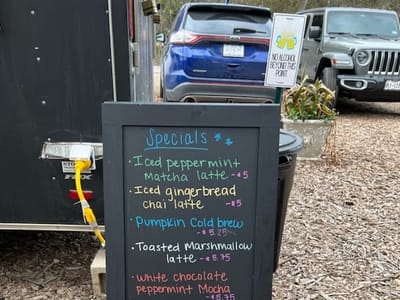 NO ALCOHOL
BEYOND THIS
POINT
Specials
· Iced peppermint
Matcha latte -$5
· Iced gingerbread
chai latte -$5
· Pumpkin Cold brew
-$5.25
· Toasted Marshmallow
latte -$5.75
· White chocolate
peppermint Mocha
-$5.75